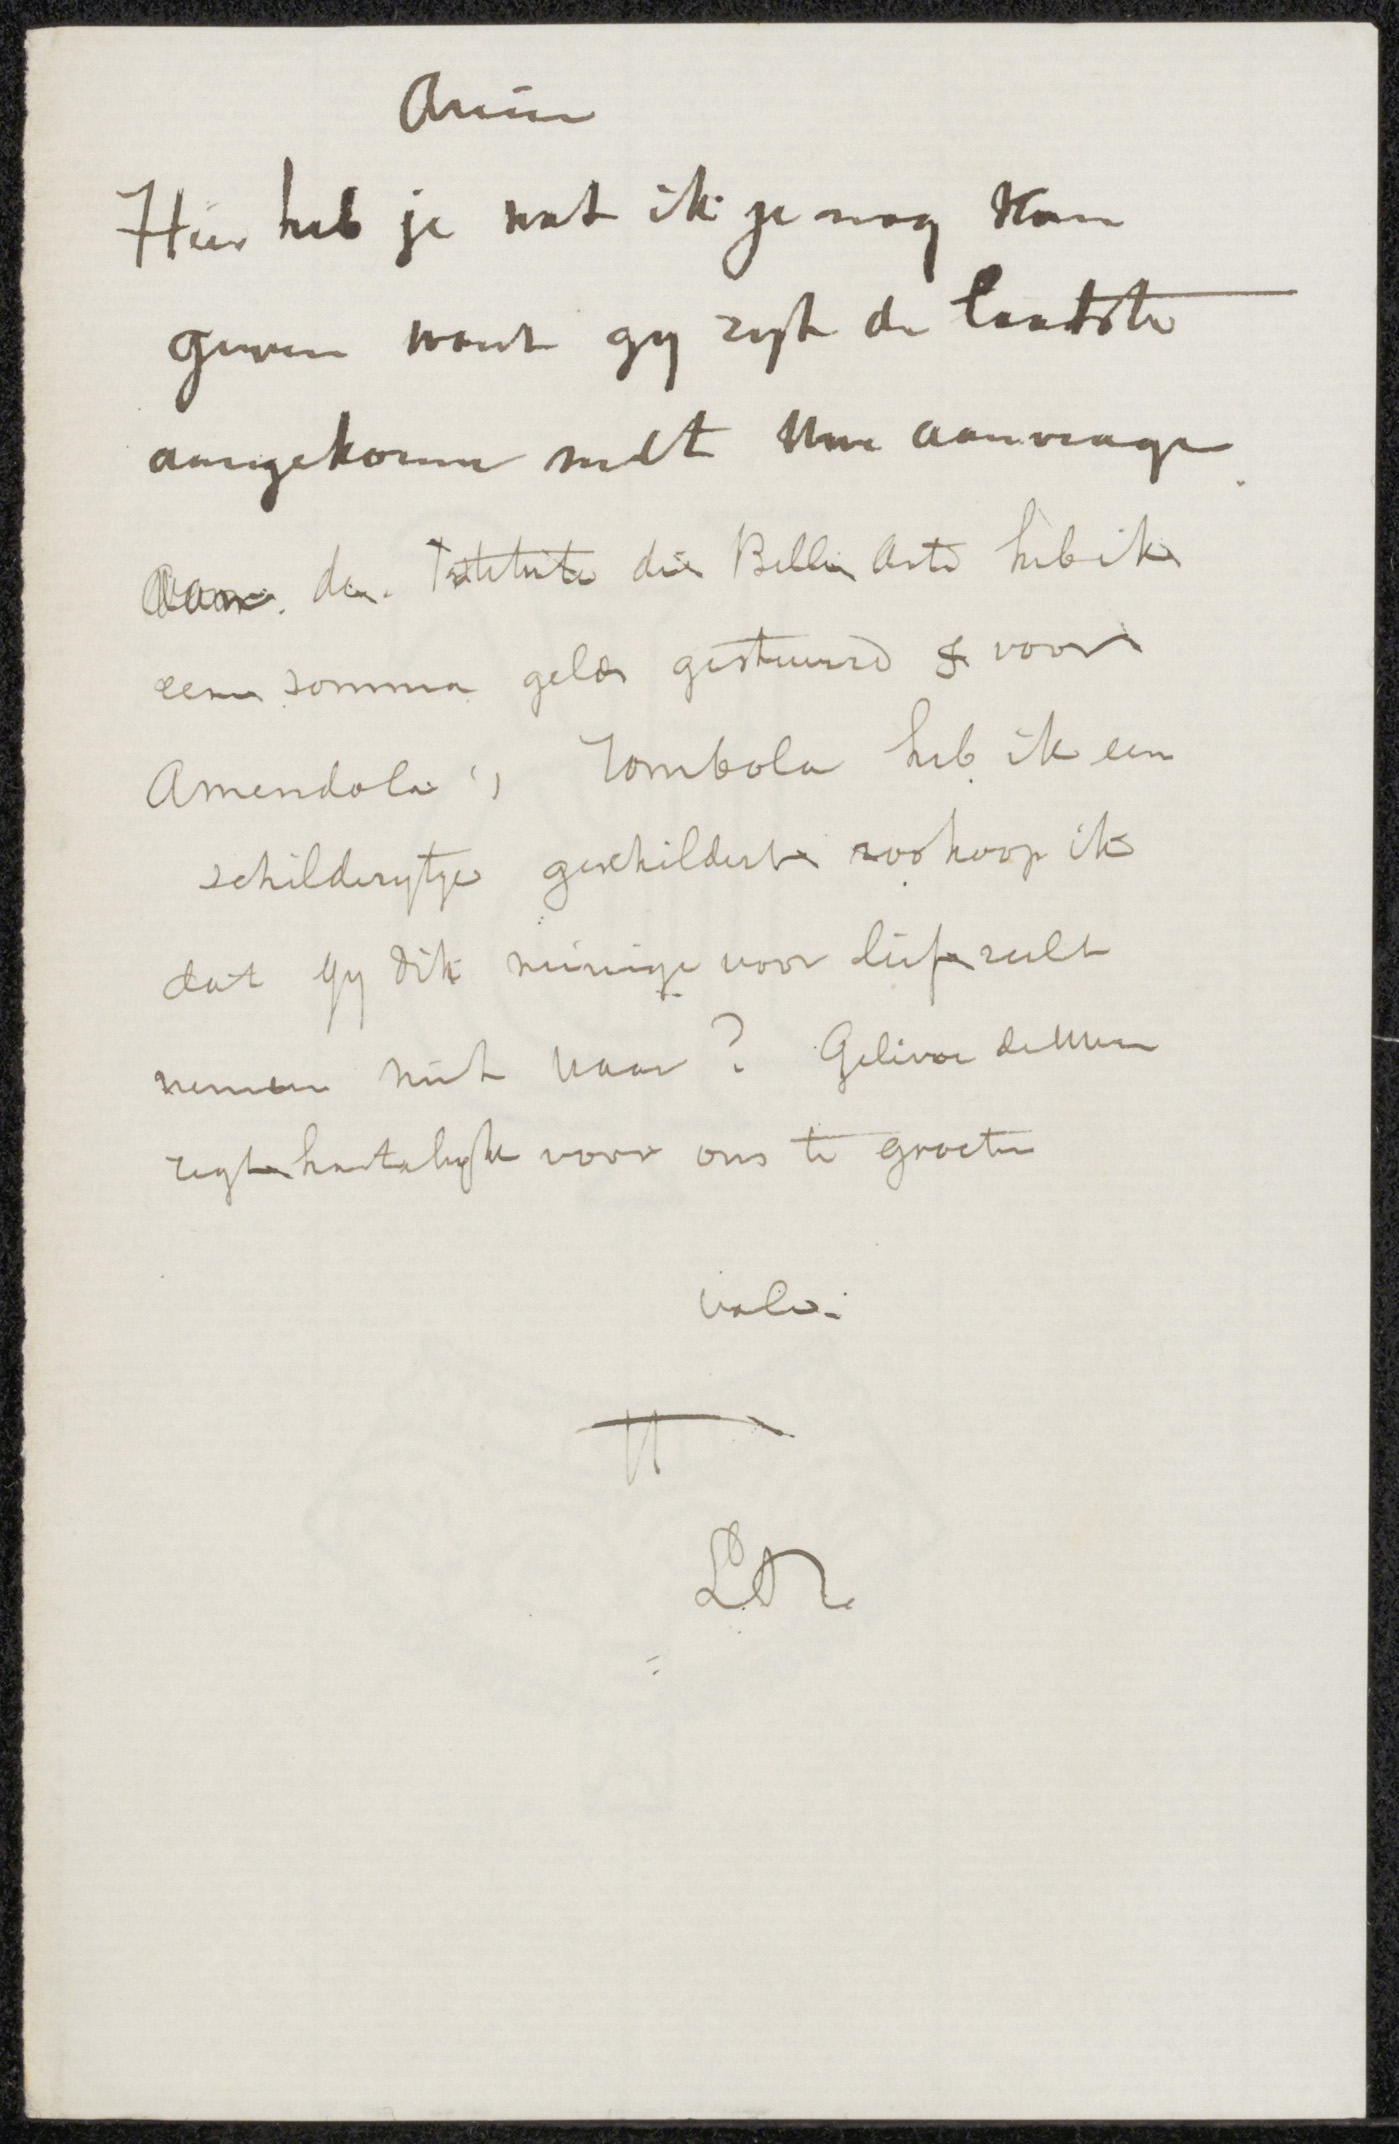 Amice
Hier heb je wat ik je nog kan
geven want gy zyt de laatste
aangekomen met Uwe aanvrage
Aan de Istituto die Belle Arte heb ik
eene somma gelds gestuurd & voor
Amendola's Tombola heb ik een
schilderytje geschildert zoo hoop ik
dat gy dit weinige voor lief zult
nemen niet waar? Gelieve de Uwen
regt hartelyk voor ons te groeten
vale.